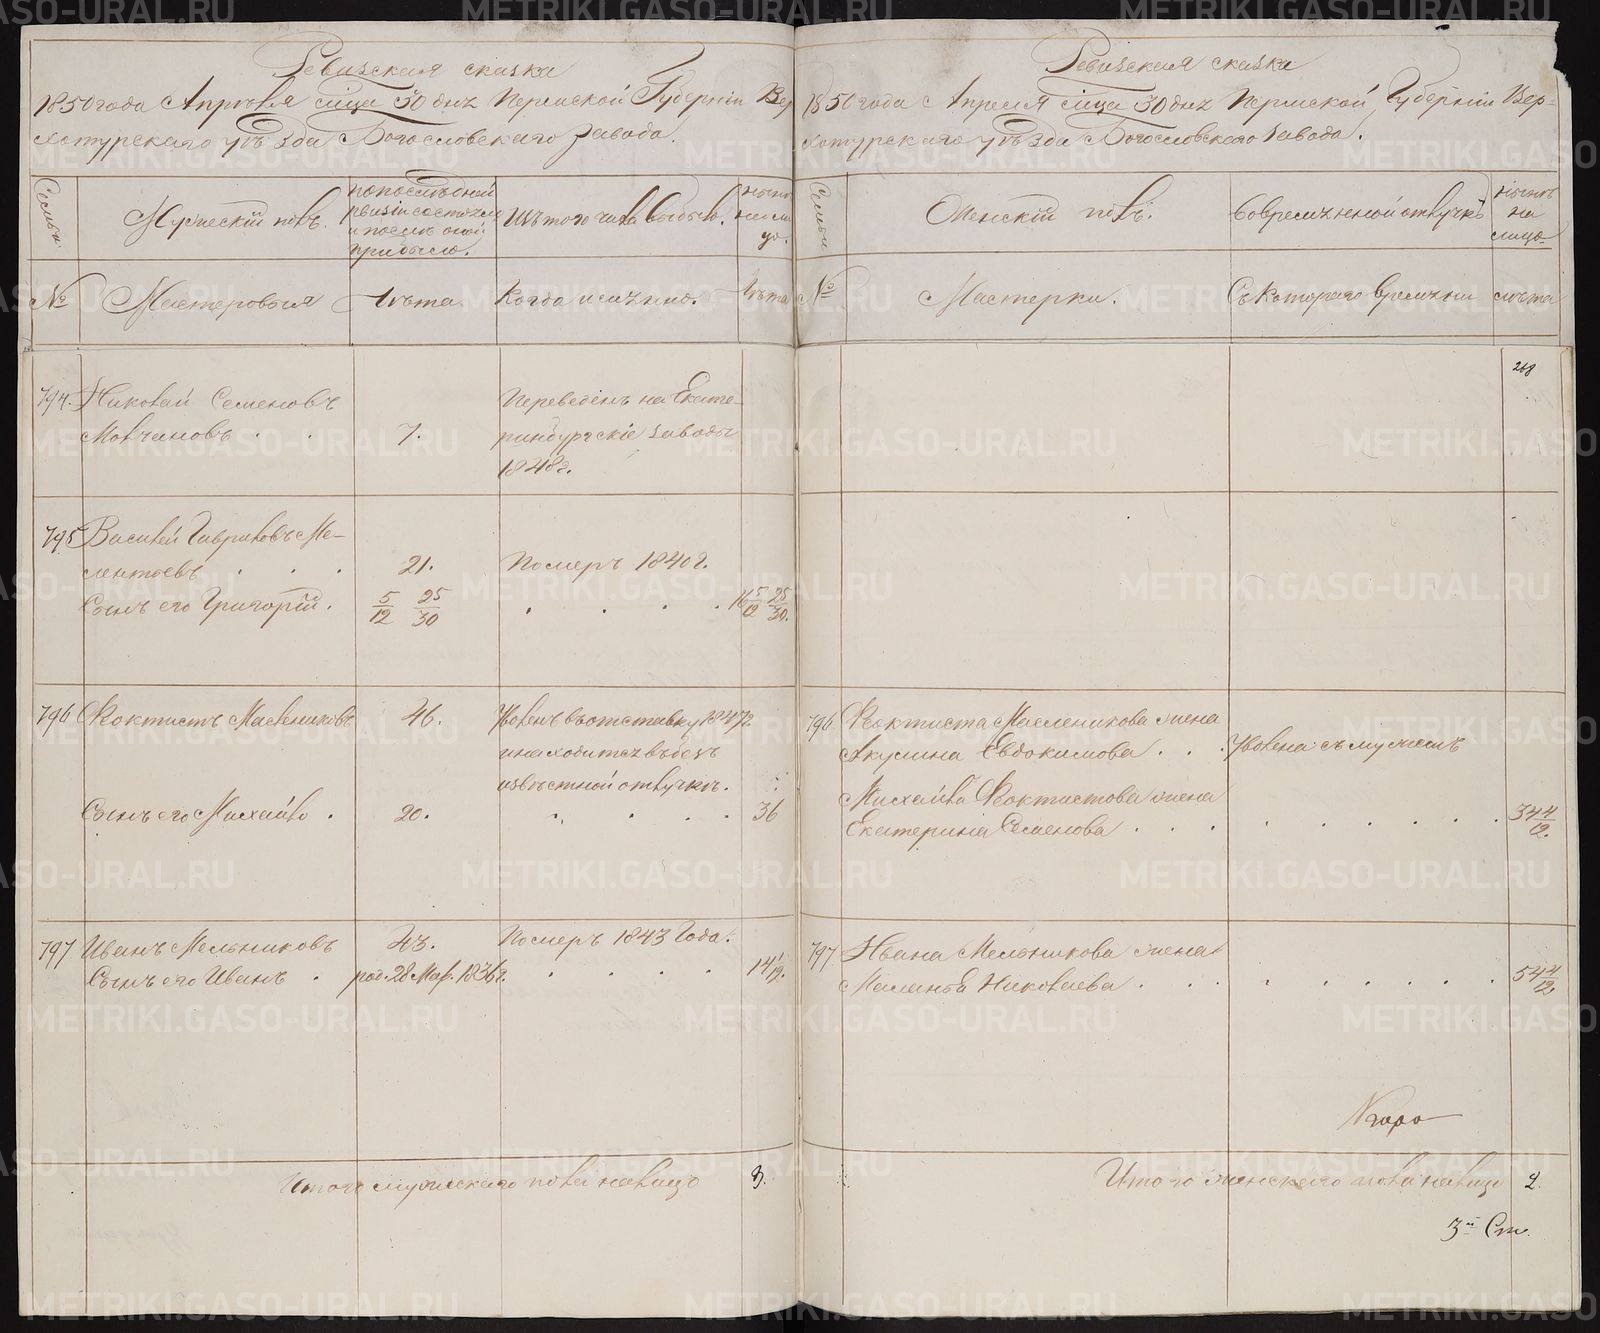 Ревизская сказка
1850 года Апреля м‍ца 30 дня Пермской Губерніи Вер
хотурскаго уѣзда Богословскаго завода.
Семьи.
Мужескій полъ.
по последней
ревизіи состояло
и после оной
прибыло.
Изъ того числа выбыло.
ныне
на ли
цо.
№
Мастеровыя
Лѣта
Когда именно.
Лѣта
794.
Николай Семеновъ
Молчановъ . .
7.
Переведенъ на Екате-
ринбургскіе заводы
1848г.
795
Василей Гавриловъ Ме-
лентьевъ . . .
21.
Померъ 1840г.
Сынъ его Григорій.
5/12 25/30
16 5/12 25/30.
796
Фоктистъ Маслениковъ
46.
Уволенъ въ отставку 1847г.
и находится въ без
известной отлучке.
Сынъ его Михайло .
20.
36
797
Иванъ Мельниковъ
43.
Померъ 1843 Года.
Сынъ его Иванъ .
род. 28 Мар. 1836г.
14 1/12.
Итого мужескаго пола налицо
3.
Ревизская сказка
1850 года Апреля м‍ца 30 дня Пермской Губерніи Вер-
хотурскаго уѣзда Богословскаго завода.
Семьи
Женскій полъ.
Во временной отлучке
ныне
на
лицо
№
Мастерки.
Съ котораго времени
лета
268
796
Фоктиста Масленикова жена
Акулина Евдокимова . . .
Уволена съ мужемъ
Михайла Фоктистова жена
Екатерина Семенова . . .
34 4/12.
797
Ивана Мельникова жена
Маланья Николаева . . .
54 4/12
Итого женскаго пола налицо
2.
3я Ст.
METRIKI.GASO-URAL.RU